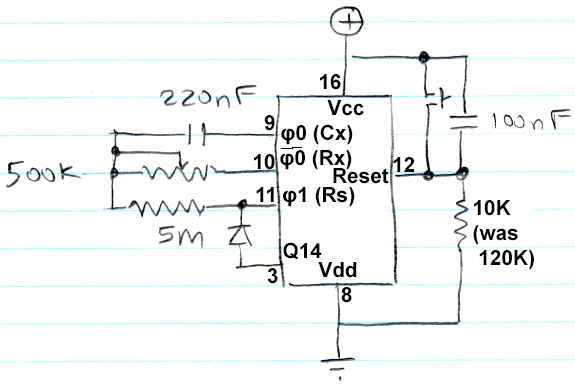 +
16
Vcc
220nF
9
φ0 (Cx)
100nF
500K
10
φ0 (Rx)
12
Reset
11
φ1 (Rs)
10K
(was
120K)
5m
Q14
3
Vdd
8